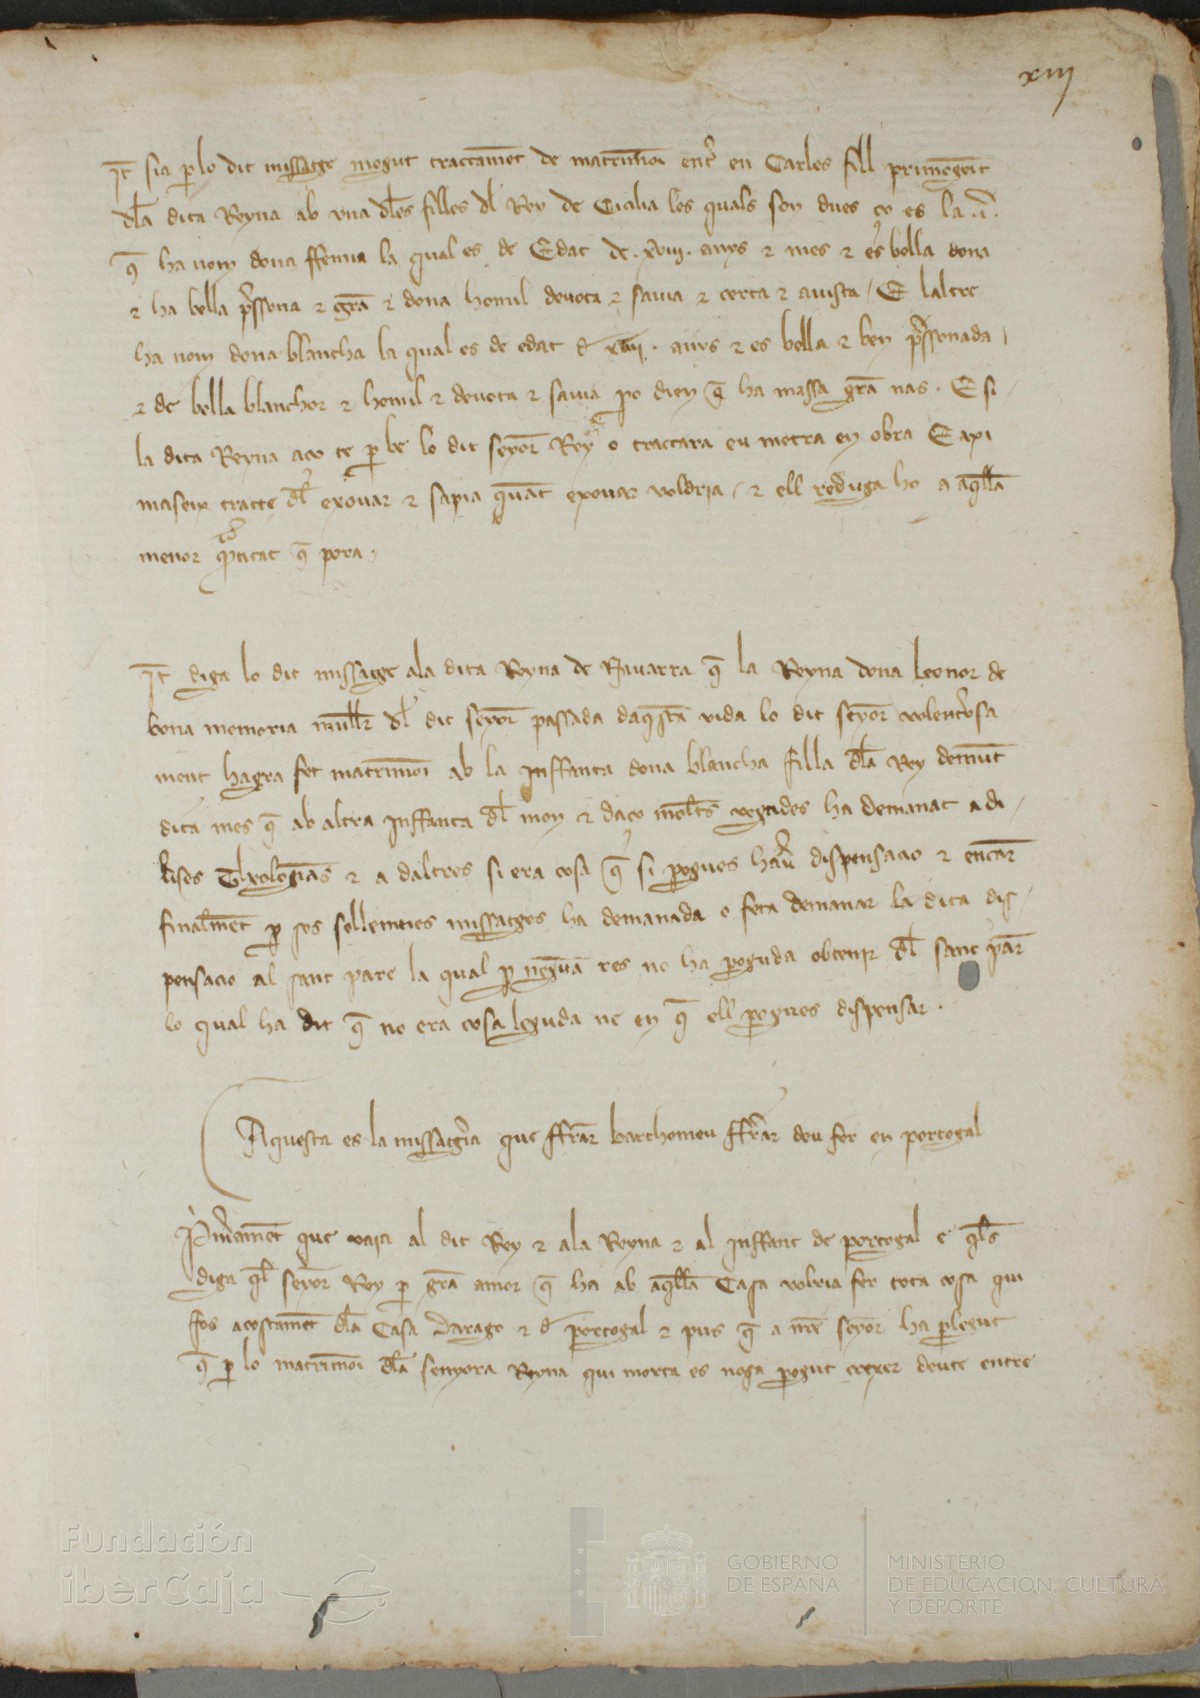 xiij
It sia p lo dit missatge mogut tractamēt de matrimōi entˀ en Carles fill primogēit
dla dita Reyna ab vna dles filles dl Rey de Cicilia les quals son dues ço es la .i.
q̄ ha nom dona ffema la qual es de Edat de .xviii. anys ⁊ mes ⁊ es bella dona
⁊ ha bella pˀssona ⁊ grā ⁊ dona homil deuota ⁊ sauia ⁊ certa ⁊ auista / E laltre
ha nom dona blancha la qual es de edat đ xvii. anys ⁊ es bella ⁊ ben pˀssonada /
⁊ de bella blanchor ⁊ homil ⁊ deuota ⁊ sauia po dien q̄ ha massa grā nas . E si
la dita Reyna aço te p be lo dit seyor Rey o tractara eu metra en obra E axi
mateix tracte dl exouar ⁊ sapia quāt exouar voldria / ⁊ ell reduga ho a aqlla
menor qtitat q̄ pora /
It diga lo dit missatge ala dita Reyna de Nauarra q̄ la Reyna dona Leonor de
bona memoria mullr dl dit seyor passada daqsta vida lo dit seyor volenterosa
ment hagra fet matrimōi ab la Inffanta dona blancha filla dla Rey demūt
dita mes q̄ ab altra Inffanta dl mon ⁊ daço moltˢ vegades ha demanat a di /
uˀses Theologiās ⁊ a daltres si era cosa q̄ si pogues hauˀ dispensacio ⁊ encar
finalmēt p sos sollempnes missatges ha demanada o feta demanar la dita dis /
pensacio al sant pare la qual p neguā res no ha poguda obtenir dl sant par
lo qual ha dit q̄ no era cosa leguda ne en q̄ ell pogues dispensar .
Aquesta es la missatgˀia que ffrār barthomeu ffrˀar deu fer en portogal
Pˀmeramēt que vaia al dit Rey ⁊ ala Reyna ⁊ al Inffant de portogal e qls
diga ql seyor Rey p grā amor q̄ ha ab aqlla Casa volria fer tota cosa qui
fos acostamēt dla Casa Darago ⁊ đ portogal ⁊ pus q̄ a nre seyor ha plegut
q̄ p lo matrimōi dla senyora Reyna qui morta es noga pogut crexer deute entre
Fundación
iberCaja
GOBIERNO
DE ESPAÑA
MINISTERIO
DE EDUCACIÓN, CULTURA
Y DEPORTE